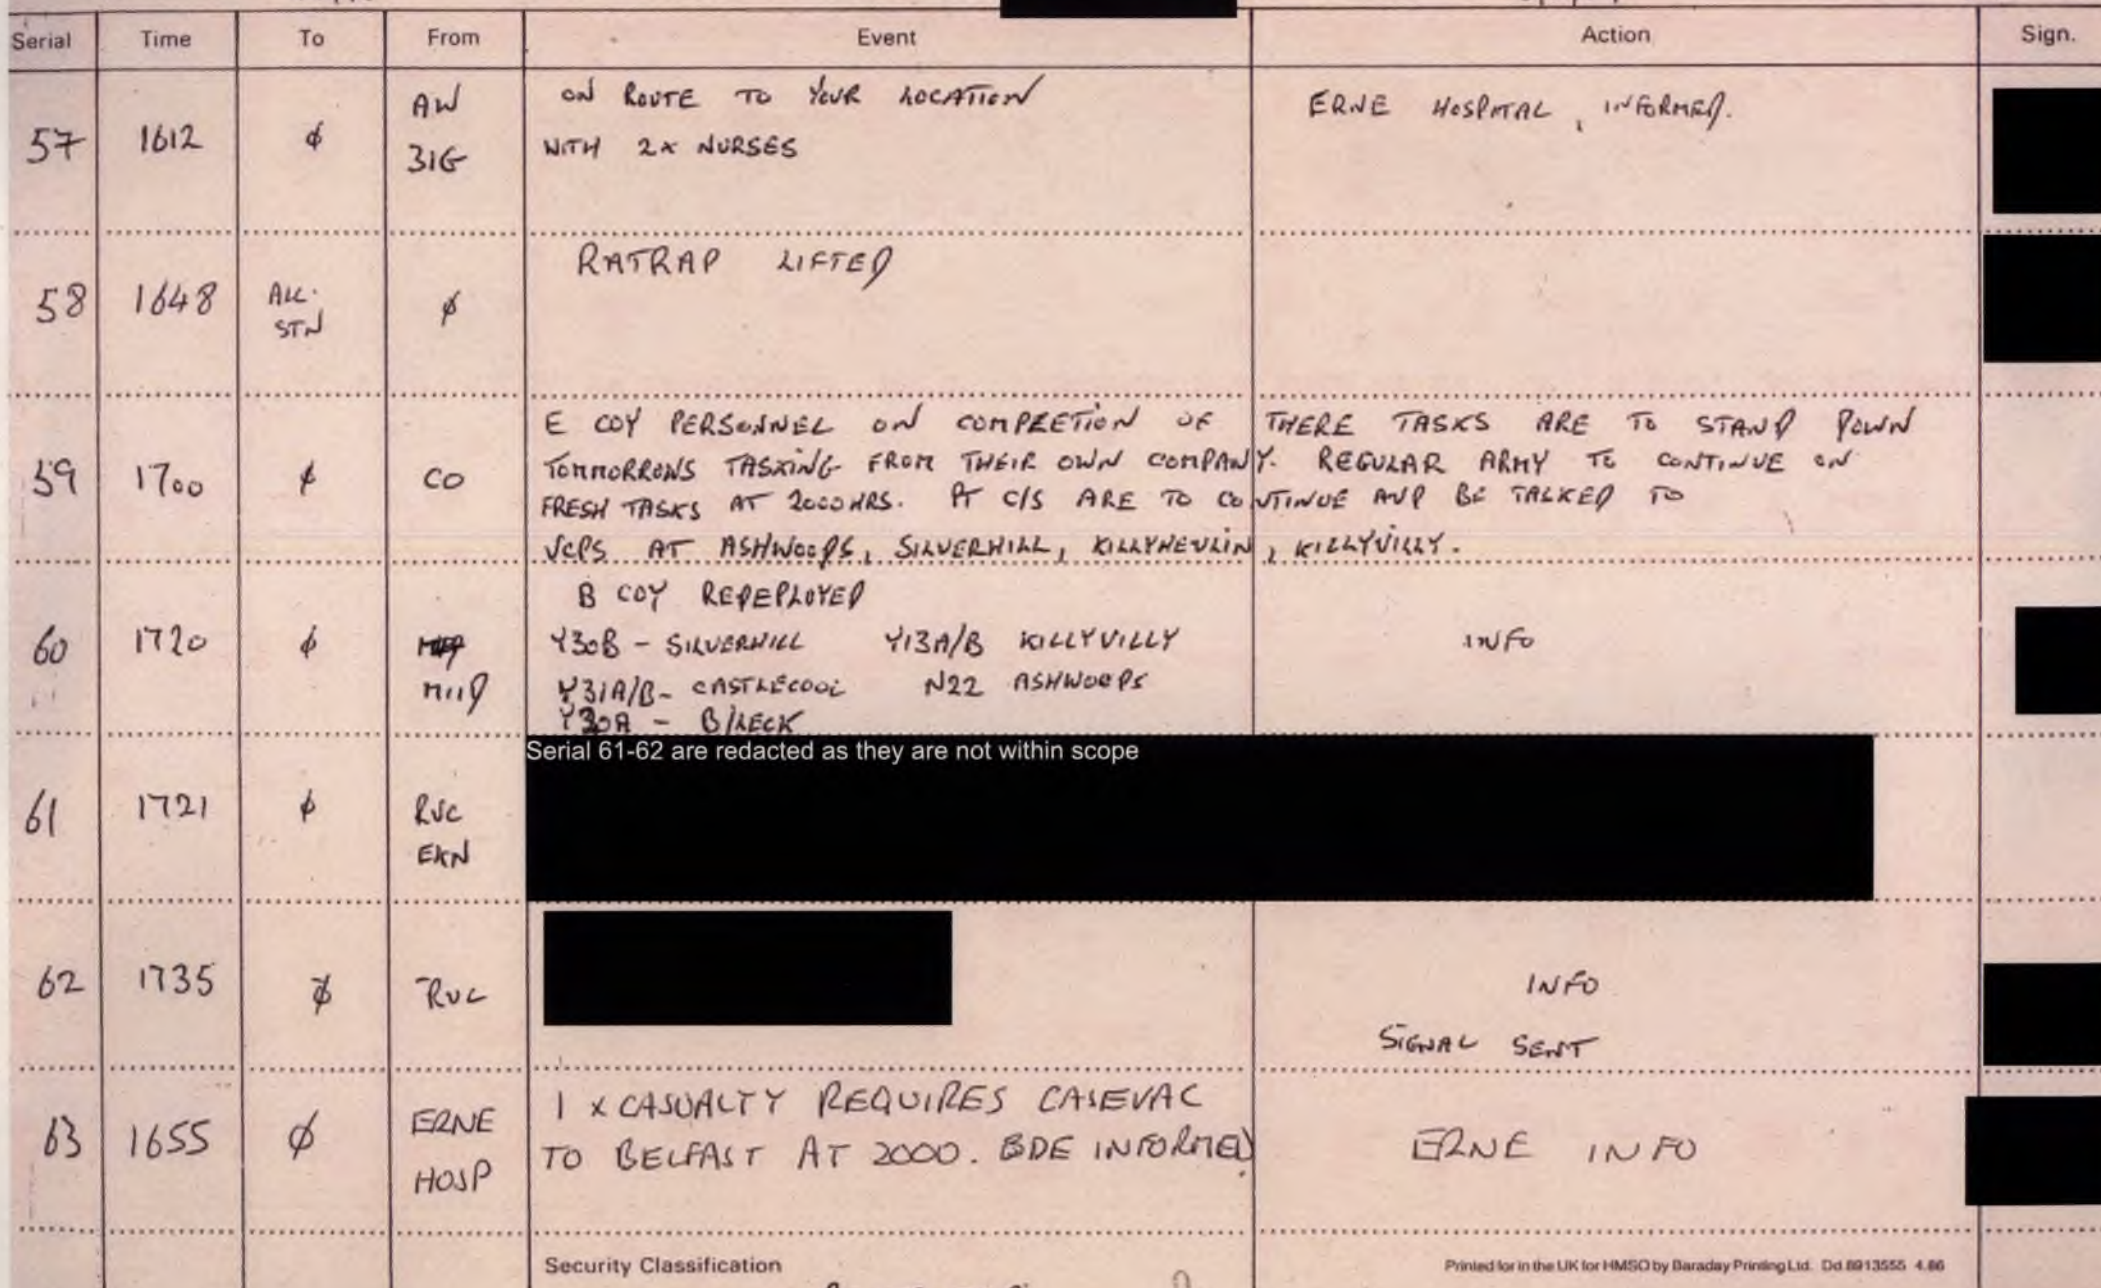 Serial Time To From Event Action Sign.
57 1612 ø AW 31G ON ROUTE TO YOUR LOCATION ERNE HOSPITAL, INFORMED.
WITH 2x NURSES
58 1648 ALL. STN ø RATRAP LIFTED
59 1700 ø CO E COY PERSONNEL ON COMPLETION OF THERE TASKS ARE TO STAND DOWN
TOMMORROWS TASKING FROM THEIR OWN COMPANY. REGULAR ARMY TO CONTINUE ON
FRESH TASKS AT 2000HRS. PT C/S ARE TO CONTINUE AND BE TALKED TO
VCPS AT ASHWOODS, SILVERHILL, KILLYHEVLIN, KILLYVILLY.
60 1720 ø B COY REDEPLOYED
Y30B - SILVERHILL Y13A/B KILLYVILLY INFO
Y31A/B - CASTLECOOL N22 ASHWOODS
Y30A - B/LECK
Serial 61-62 are redacted as they are not within scope
61 1721 ø RUC EKN
62 1735 ø RUC INFO
SIGNAL SENT
63 1655 ø ERNE HOSP 1 x CASUALTY REQUIRES CASEVAC
TO BELFAST AT 2000. BDE INFORMED ERNE INFO
Security Classification
Printed for in the UK for HMSO by Baraday Printing Ltd. Dd 8913555 4.86